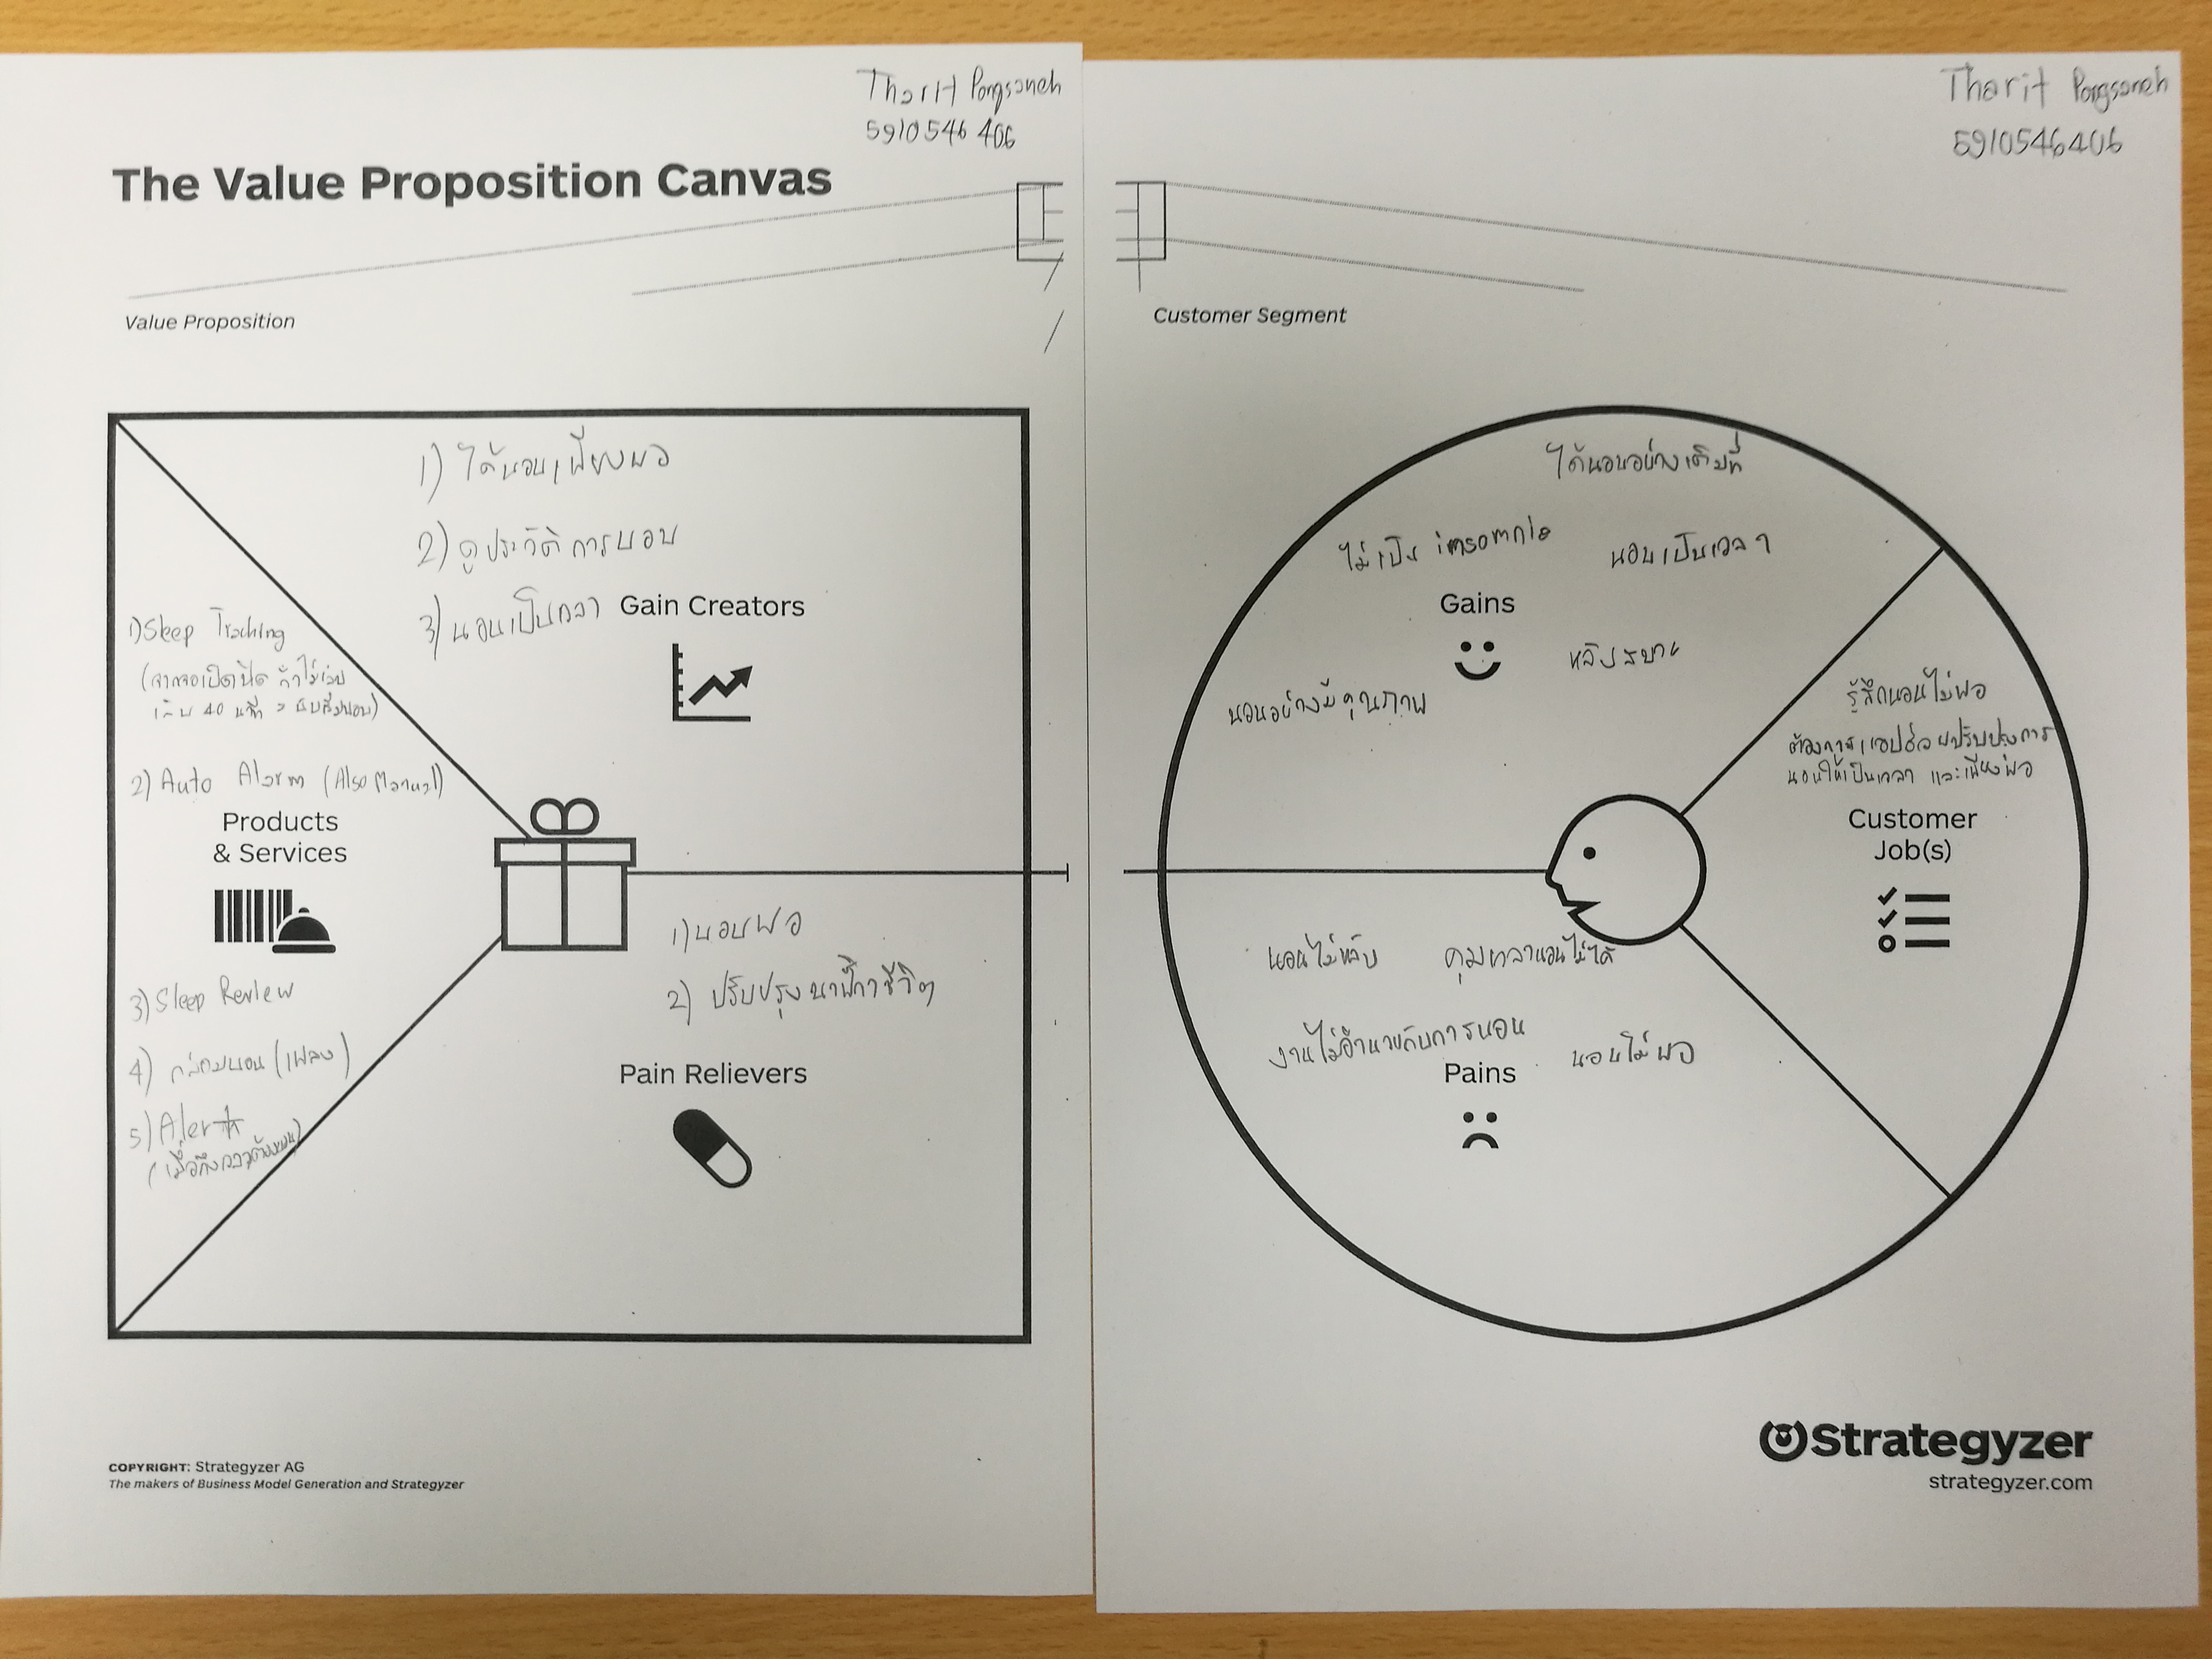 Tharit Pongsaneh
5910546406
The Value Proposition Canvas
Value Proposition
1) ได้นอนเพียงพอ
2) ดูประวัติการนอน
3) นอนเป็นเวลา
Gain Creators
1) Sleep Tracking
(จากจอเปิดปิด ถ้าไม่เปิด
เกิน 40 นาที = นับ)
2) Auto Alarm (Also Manual)
Products
& Services
3) Sleep Review
4) กล่อมนอน (เพลง)
5) Alert
(เมื่อถึงเวลาต้องนอน)
1) นอนพอ
2) ปรับปรุงนาฬิกาชีวิต
Pain Relievers
COPYRIGHT: Strategyzer AG
The makers of Business Model Generation and Strategyzer
Tharit Pongsaneh
5910546406
Customer Segment
ได้นอนอย่างเต็มที่
ไม่เป็น insomnia
นอนเป็นเวลา
Gains
หลับสบาย
นอนอย่างมีคุณภาพ
รู้สึกนอนไม่พอ
ต้องการแอปช่วยปรับปรุงการ
นอนให้เป็นเวลา และเพียงพอ
Customer
Job(s)
นอนไม่หลับ
คุมเวลานอนไม่ได้
งานไม่อำนวยกับการนอน
นอนไม่พอ
Pains
Strategyzer
strategyzer.com